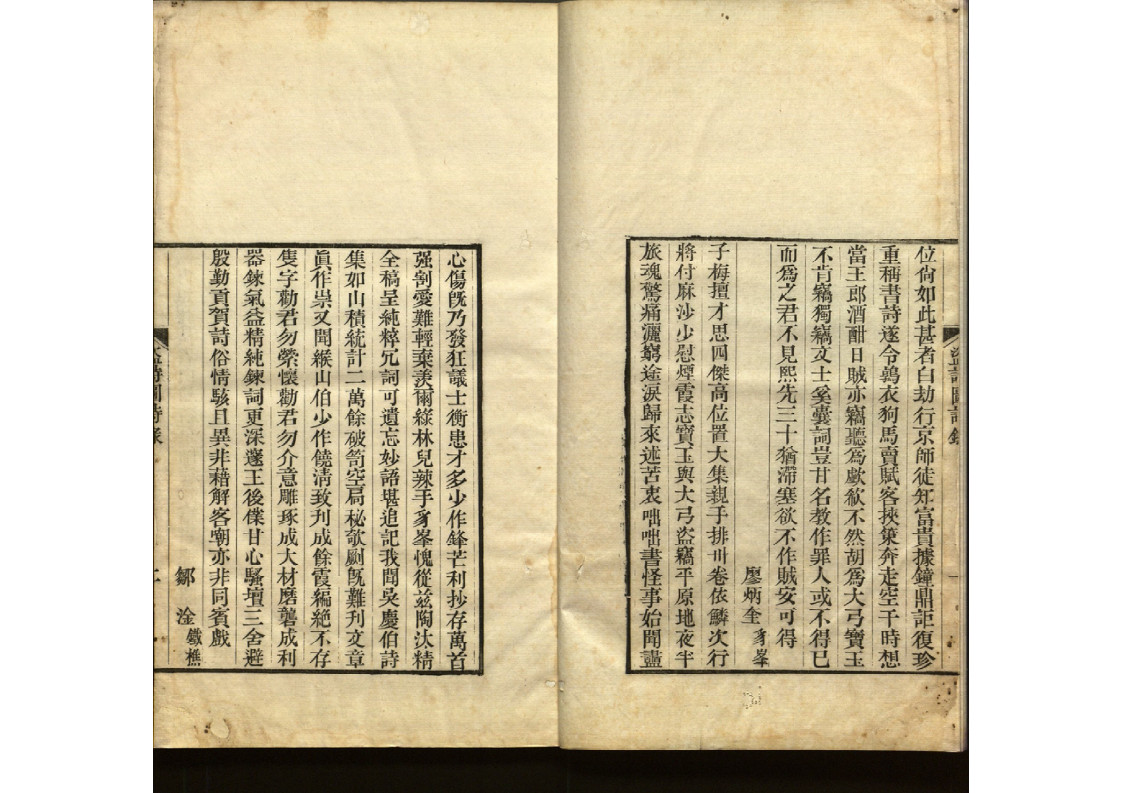 位尙如此甚者白劫行京師徒知富貴據鐘鼎詎復珍
重稱書詩遂令鶉衣狗馬賣賦客挾策奔走空干時想
當王郎酒酣日賊亦竊聽爲歔欷不然胡爲大弓寶玉
不肯竊獨竊文士奚囊詞豈甘名敎作罪人或不得已
而爲之君不見熙先三十猶滯塞欲不作賊安可得
廖炳奎 豸峯
子梅擅才思四傑高位置大集親手排卅卷依鱗次行
將付麻沙少慰煙霞志寶玉與大弓盜竊平原地夜半
旅魂驚痛灑窮途淚歸來述苦衷咄咄書怪事始聞盡
心傷旣乃發狂議士衡患才多少作鋒芒利抄存萬首
强割愛難輕棄羨爾綠林兒辣手豸峯愧從茲陶汰精
全稿呈純粹冗詞可遺忘妙語堪追記我聞吳慶伯詩
集如山積統計二萬餘破笥空局秘欹劂旣難刋文章
眞作祟又聞緱山伯少作饒淸致刋成餘霞編絕不存
隻字勸君勿縈懷勸君勿介意雕琢成大材磨礱成利
器鍊氣益精純鍊詞更深邃王後僕甘心騷壇三舍避
殷勤貢賀詩俗情駭且異非藉解客嘲亦非同賓戲
鄒淦 鐵樵